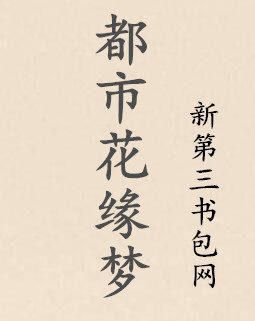 都市花缘梦
新第三书包网